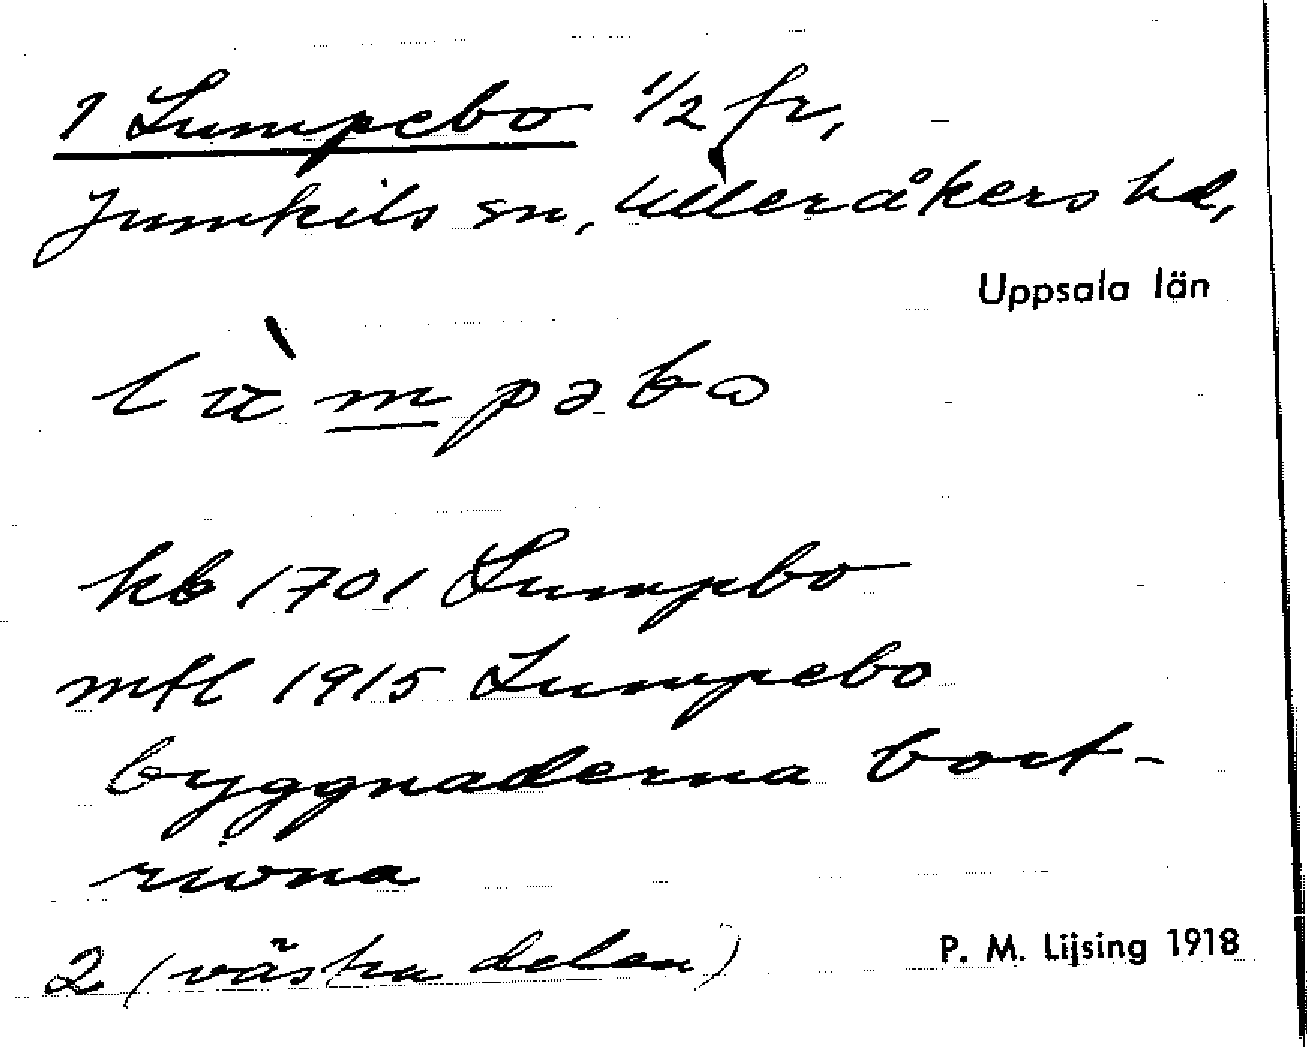 1 Lumpebo 1/2 fr,
Jumkils sn, Ulleråkers hd,
Uppsala län
lùmpəbo
kb 1701 Lumpbo
mtl 1915 Lumpebo
byggnaderna bort-
rivna
2 (västra delen)
P. M. Lijsing 1918